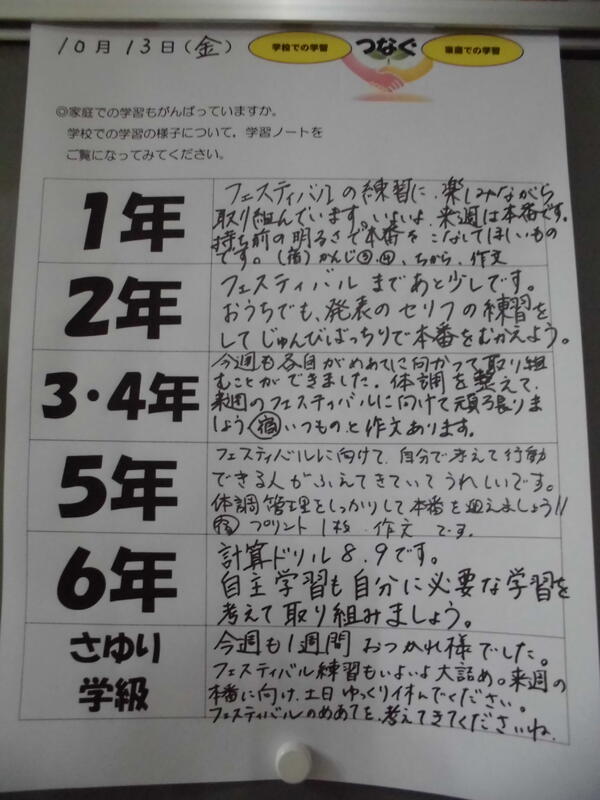 10月13日(金)
学校での学習 つなぐ 家庭での学習
◎家庭での学習もがんばっていますか。
学校での学習の様子について，学習ノートを
ご覧になってみてください。
1年
フェスティバルの練習に、楽しみながら
取り組んでいます。いよいよ、来週は本番です。
持ち前の明るさで本番をこなしてほしいもの
です。(宿)かんじ、ちから、作文
2年
フェスティバルまであと少しです。
おうちでも、発表のセリフの練習を
してじゅんびばっちりで本番をむかえよう。
3・4年
今週も各自がめあてに向かって取り組
むことができました。体調を整えて、
来週のフェスティバルに向けて頑張りま
しょう。宿いつものと作文あります。
5年
フェスティバルに向けて、自分で考えて行動
できる人がふえてきていてうれしいです。
体調管理をしっかりして本番を迎えましょう!!
宿 プリント1枚 作文 です。
6年
計算ドリル8.9です。
自主学習も自分に必要な学習を
考えて取り組みましょう。
さゆり
学級
今週も1週間おつかれ様でした。
フェスティバル練習もいよいよ大詰め。来週の
本番に向け、土日ゆっくり休んでください。
フェスティバルのめあてを、考えてきてくださいね。